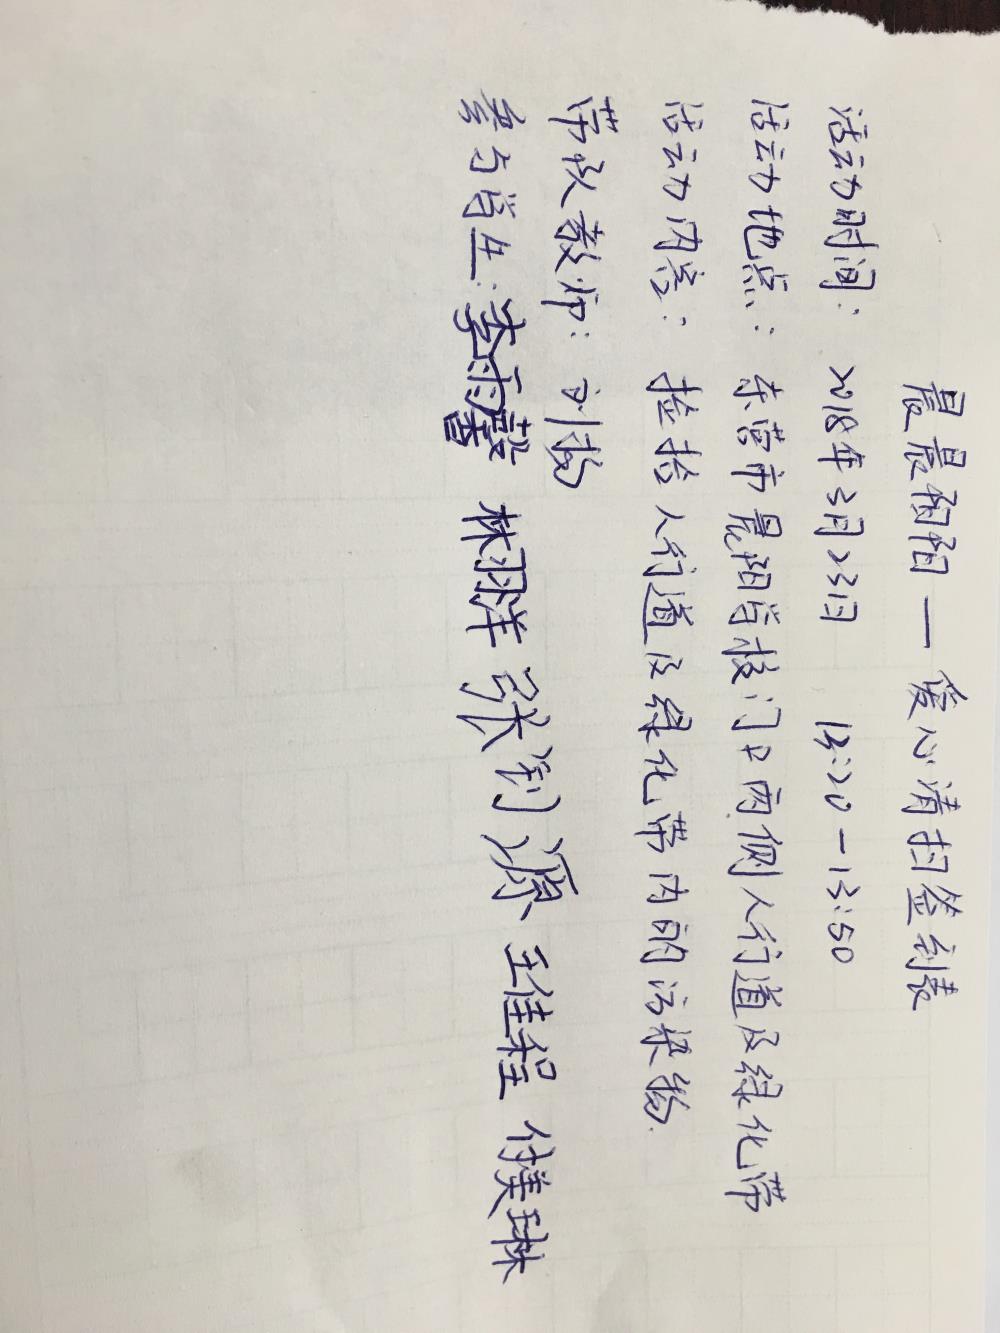 晨晨阳阳一爱心清扫签到表
活动时间：2018年3月23日 13:20-13:50
活动地点：东营市晨阳学校门口两侧人行道及绿化带
活动内容：捡拾人行道及绿化带内的污染物.
带队教师：刘杨
参与学生：李雨馨 林羽洋 张淯源 王佳程 付美琳